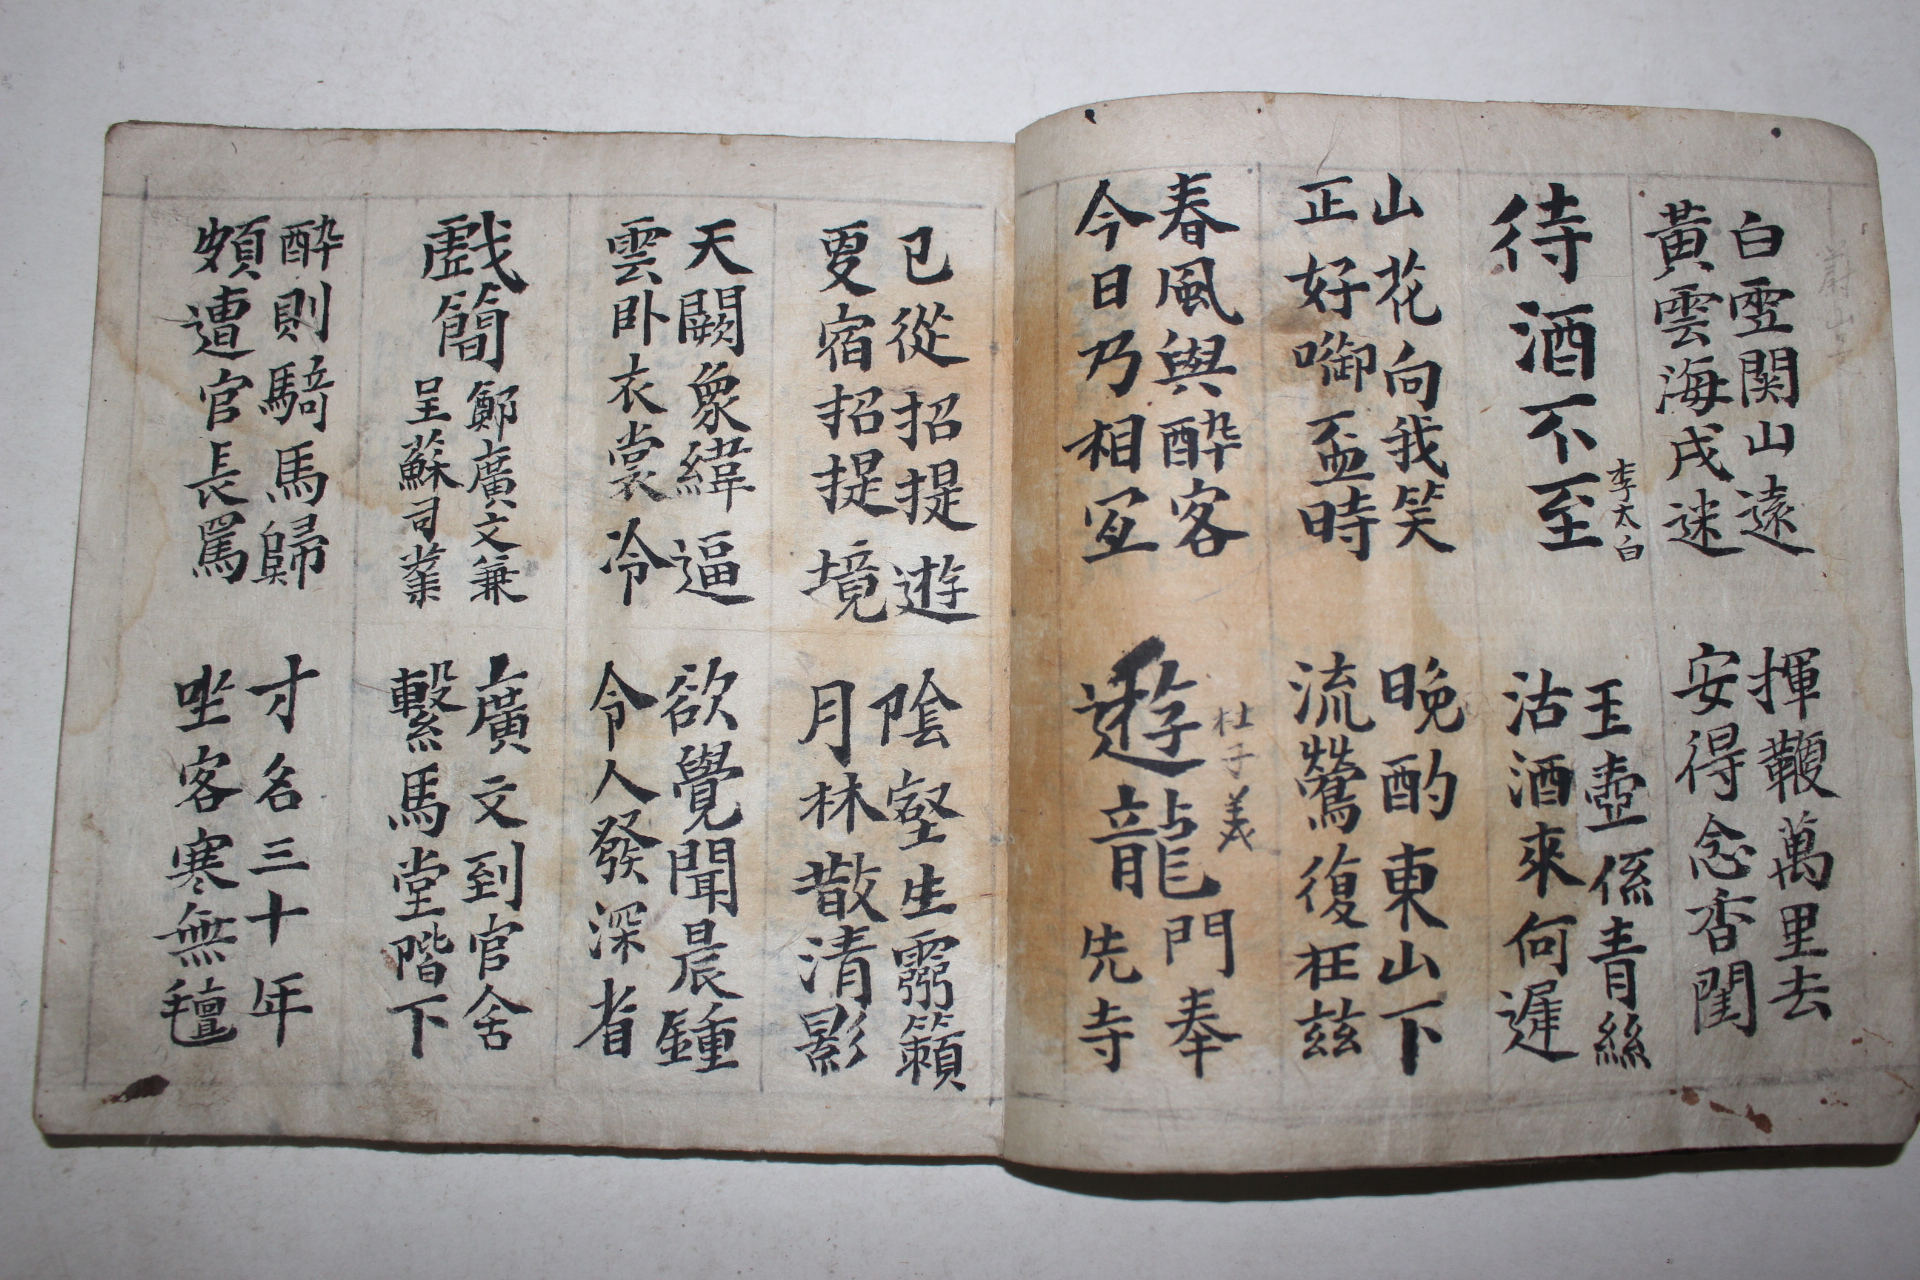 白雪関山遠
黃雲海戍迷
揮鞭萬里去
安得念香閨
待酒不至
李太白
玉壺係青絲
沽酒來何遲
山花向我笑
正好啣盃時
晚酌東山下
流鶯復在茲
春風與醉客
今日乃相宜
遊龍門奉
先寺
杜子美
已從招提遊
更宿招提境
陰壑生靈籟
月林散清影
天闕象緯逼
雲卧衣裳冷
欲覺聞晨鍾
令人發深省
戱簡
鄭廣文兼
呈蘇司業
廣文到官舍
繫馬堂階下
醉則騎馬歸
頗遭官長罵
才名三十年
坐客寒無氊